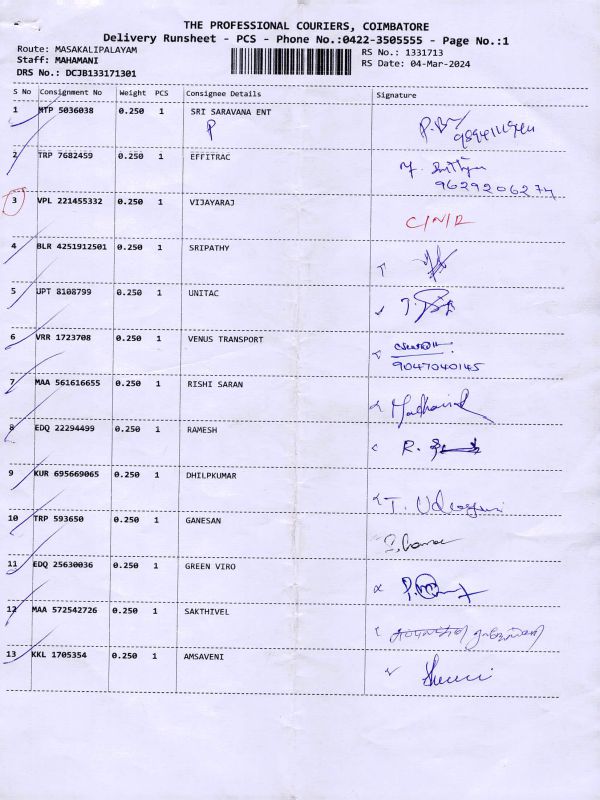 THE PROFESSIONAL COURIERS, COIMBATORE
Delivery Runsheet - PCS - Phone No.:0422-3505555 - Page No.:1
Route: MASAKALIPALAYAM
Staff: MAHAMANI
DRS No.: DCJB133171301
RS No.: 1331713
RS Date: 04-Mar-2024
S No Consignment No Weight PCS Consignee Details Signature
1 MTP 5036038 0.250 1 SRI SARAVANA ENT
P
2 TRP 7682459 0.250 1 EFFITRAC
9629206274
3 VPL 221455332 0.250 1 VIJAYARAJ
C/N/R
4 BLR 4251912501 0.250 1 SRIPATHY
5 UPT 8108799 0.250 1 UNITAC
6 VRR 1723708 0.250 1 VENUS TRANSPORT
9047040145
7 MAA 561616655 0.250 1 RISHI SARAN
8 EDQ 22294499 0.250 1 RAMESH
R.
9 KUR 695669065 0.250 1 DHILPKUMAR
10 TRP 593650 0.250 1 GANESAN
11 EDQ 25630036 0.250 1 GREEN VIRO
12 MAA 572542726 0.250 1 SAKTHIVEL
13 KKL 1705354 0.250 1 AMSAVENI